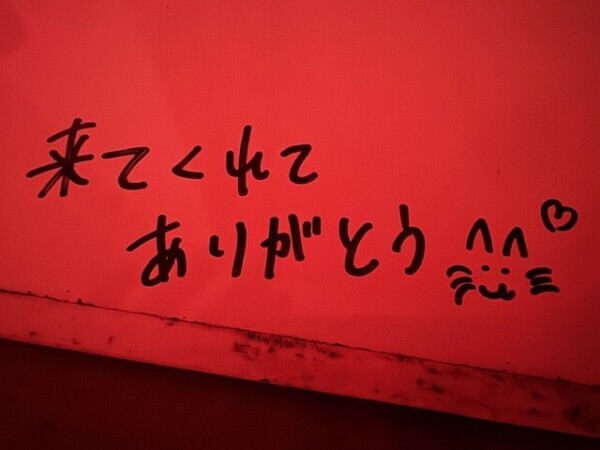 来てくれて
ありがとう